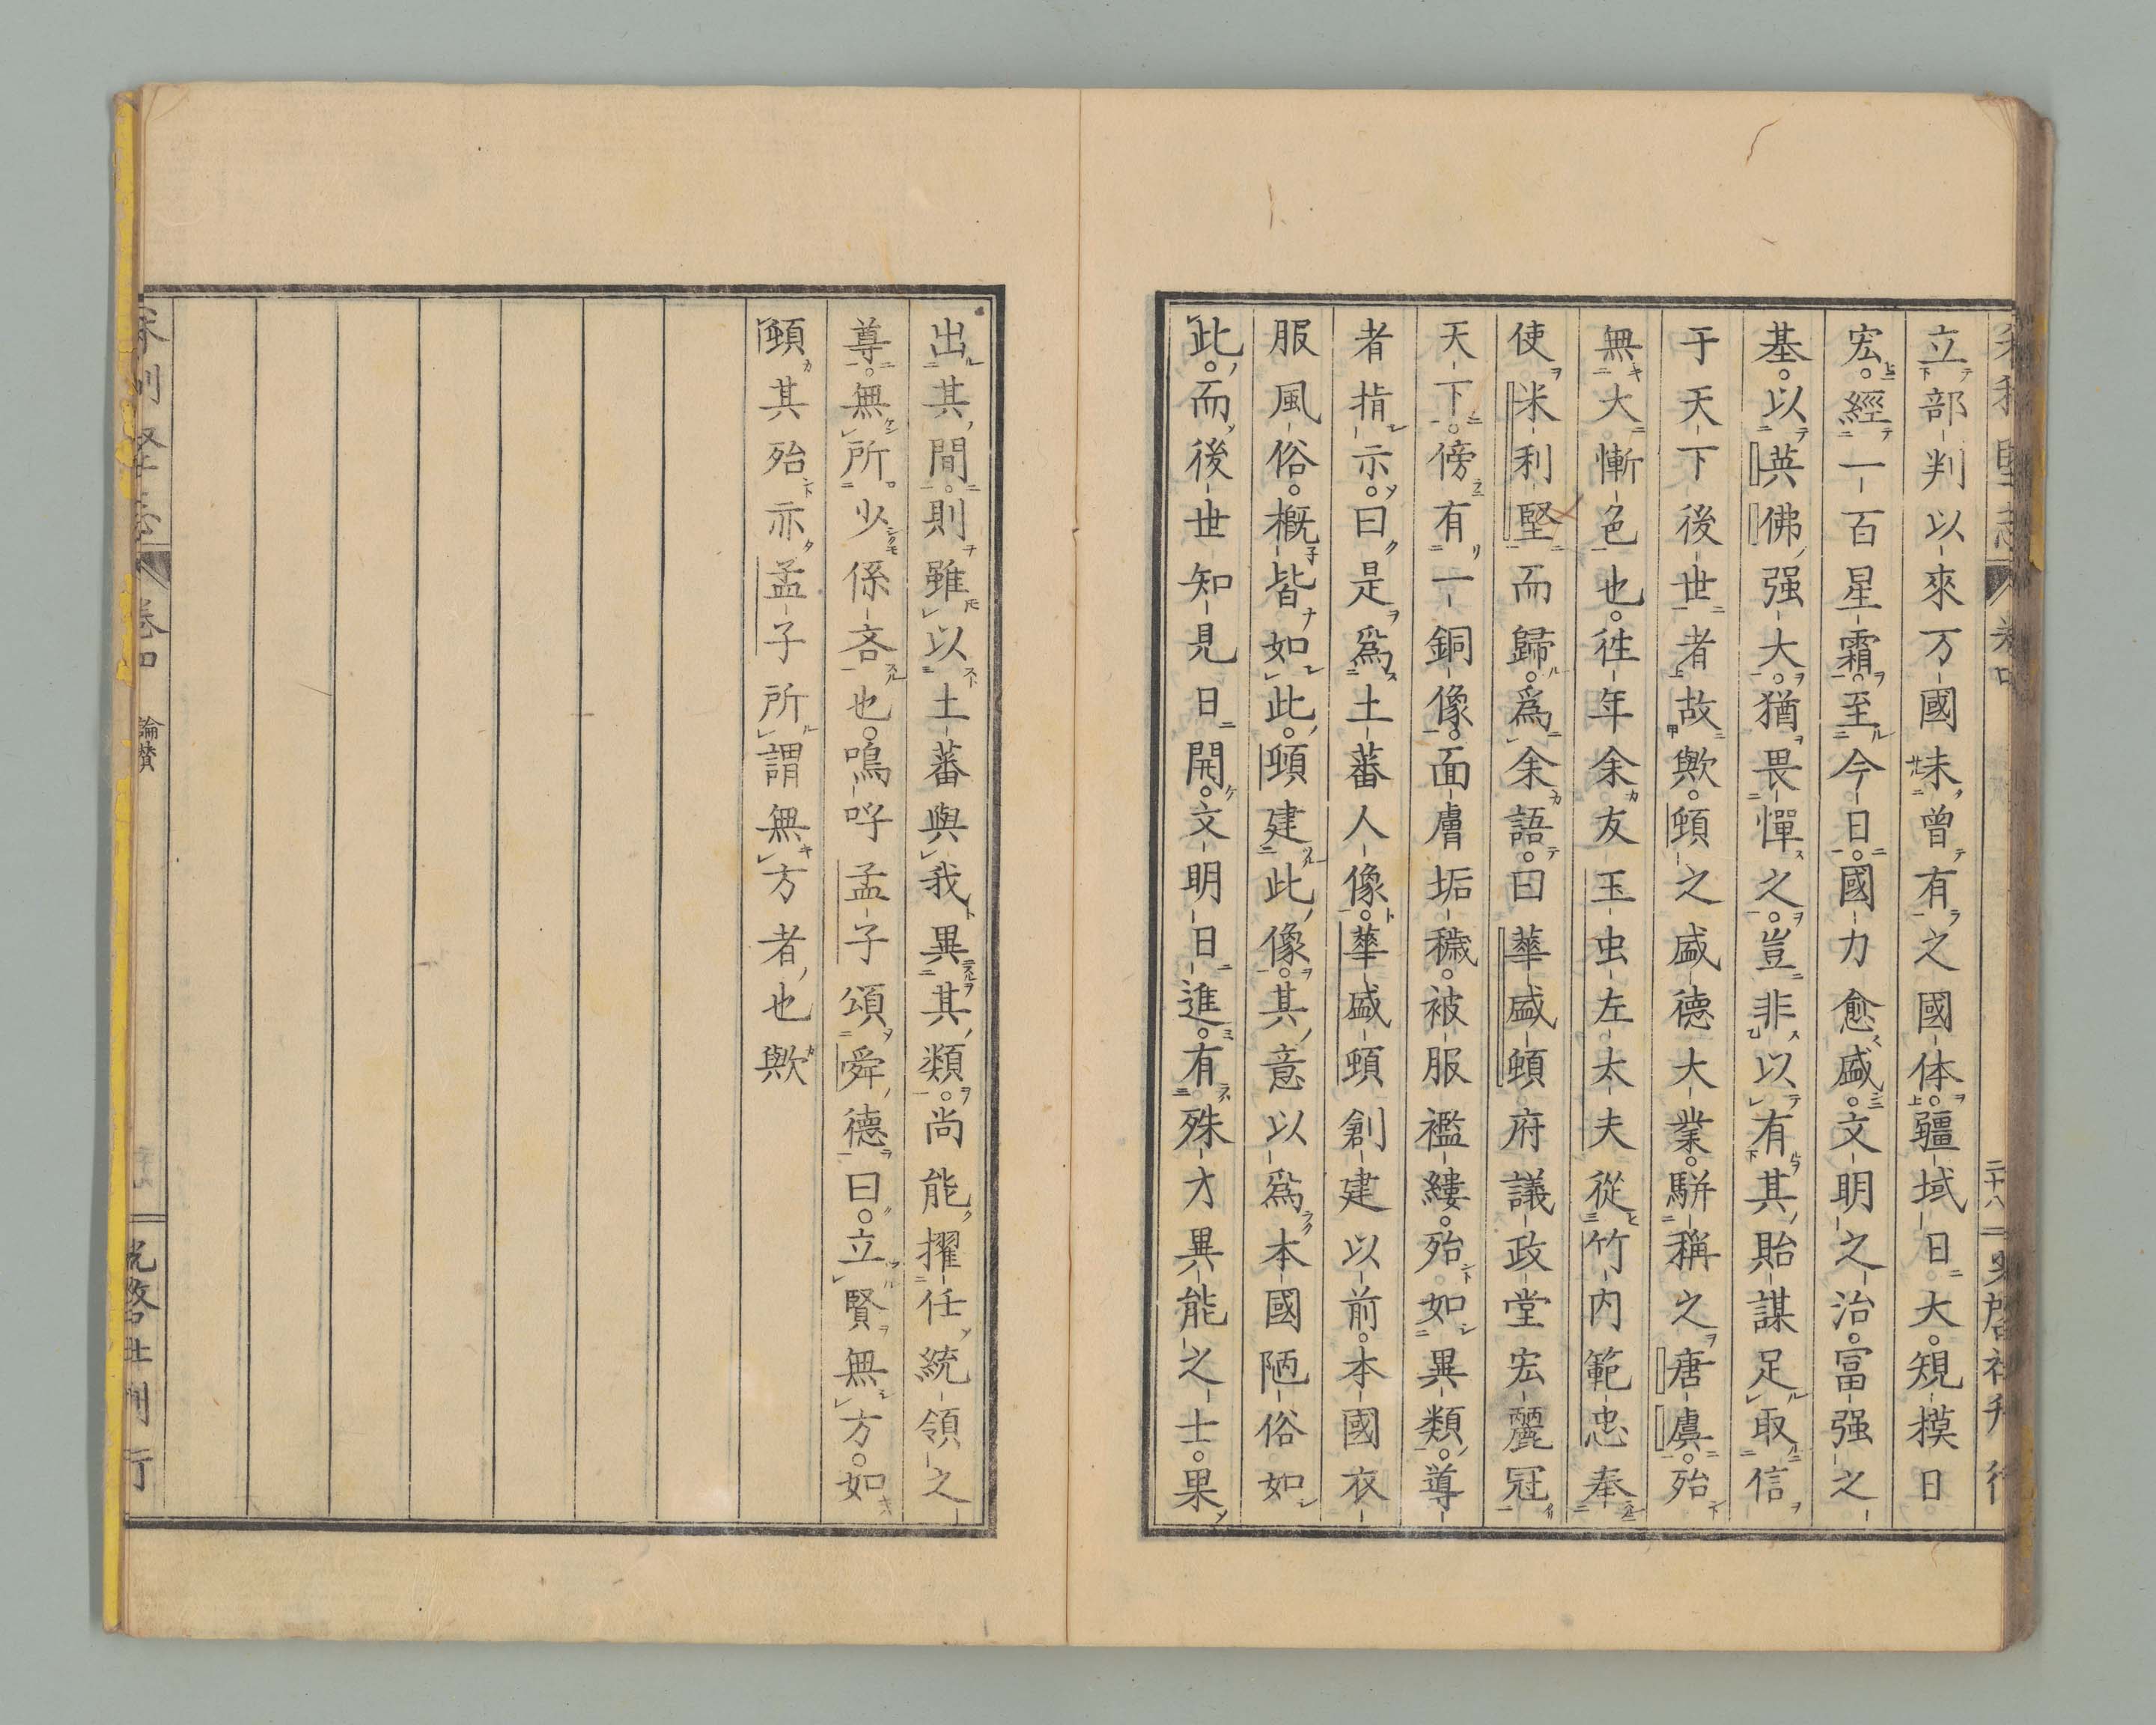 立部判以來万國未曾有之國体疆域日大規摸日
宏經一百星霜至今日國力愈盛文明之治富强之
基以英佛强大猶畏憚之豈非以有其貽謀足取信
于天下後世者故歟頓之盛德大業駢稱之唐虞殆
無大慚色也徃年余友玉虫左太夫從竹内範忠奉
使米利堅而歸爲余語曰華盛頓府議政堂宏麗冠
天下傍有一銅像面膚垢穢被服襤縷殆如異類導
者指示曰是爲土蕃人像華盛頓創建以前本國衣
服風俗概皆如此頓建此像其意以爲本國陋俗如
此而後世知見日開文明日進有殊才異能之士果
出其間則雖以土蕃與我異其類尚能擢任統領之
尊無所少係吝也嗚呼孟子頌舜德曰立賢無方如
頓其殆亦孟子所謂無方者也歟
卷四 論贊